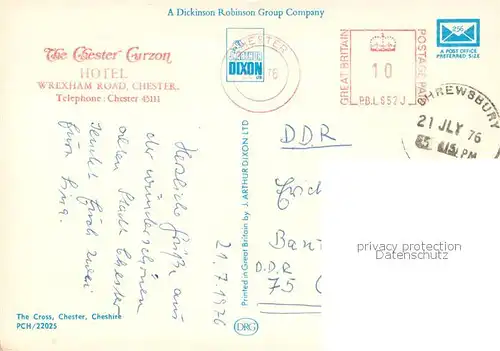 A Dickinson Robinson Group Company
The Chester Curzon
HOTEL
WREXHAM ROAD, CHESTER.
Telephone: Chester 45111
CHESTER
ARTHUR
DIXON
76
GREAT BRITAIN
10
POSTAGE PAID
P.B.L 652 J
256
A POST OFFICE
PREFERRED SIZE
SHREWSBURY
21 JLY 76
5 15 PM
Herzliche Grüße aus
der wunderschönen
alten Stadt Chester
sendet Euch zwei
Eure
21.7.1976
Printed in Great Britain by J. ARTHUR DIXON LTD
DRG
DDR
Erich
D.D.R
75
privacy protection
Datenschutz
The Cross, Chester, Cheshire
PCH/22025